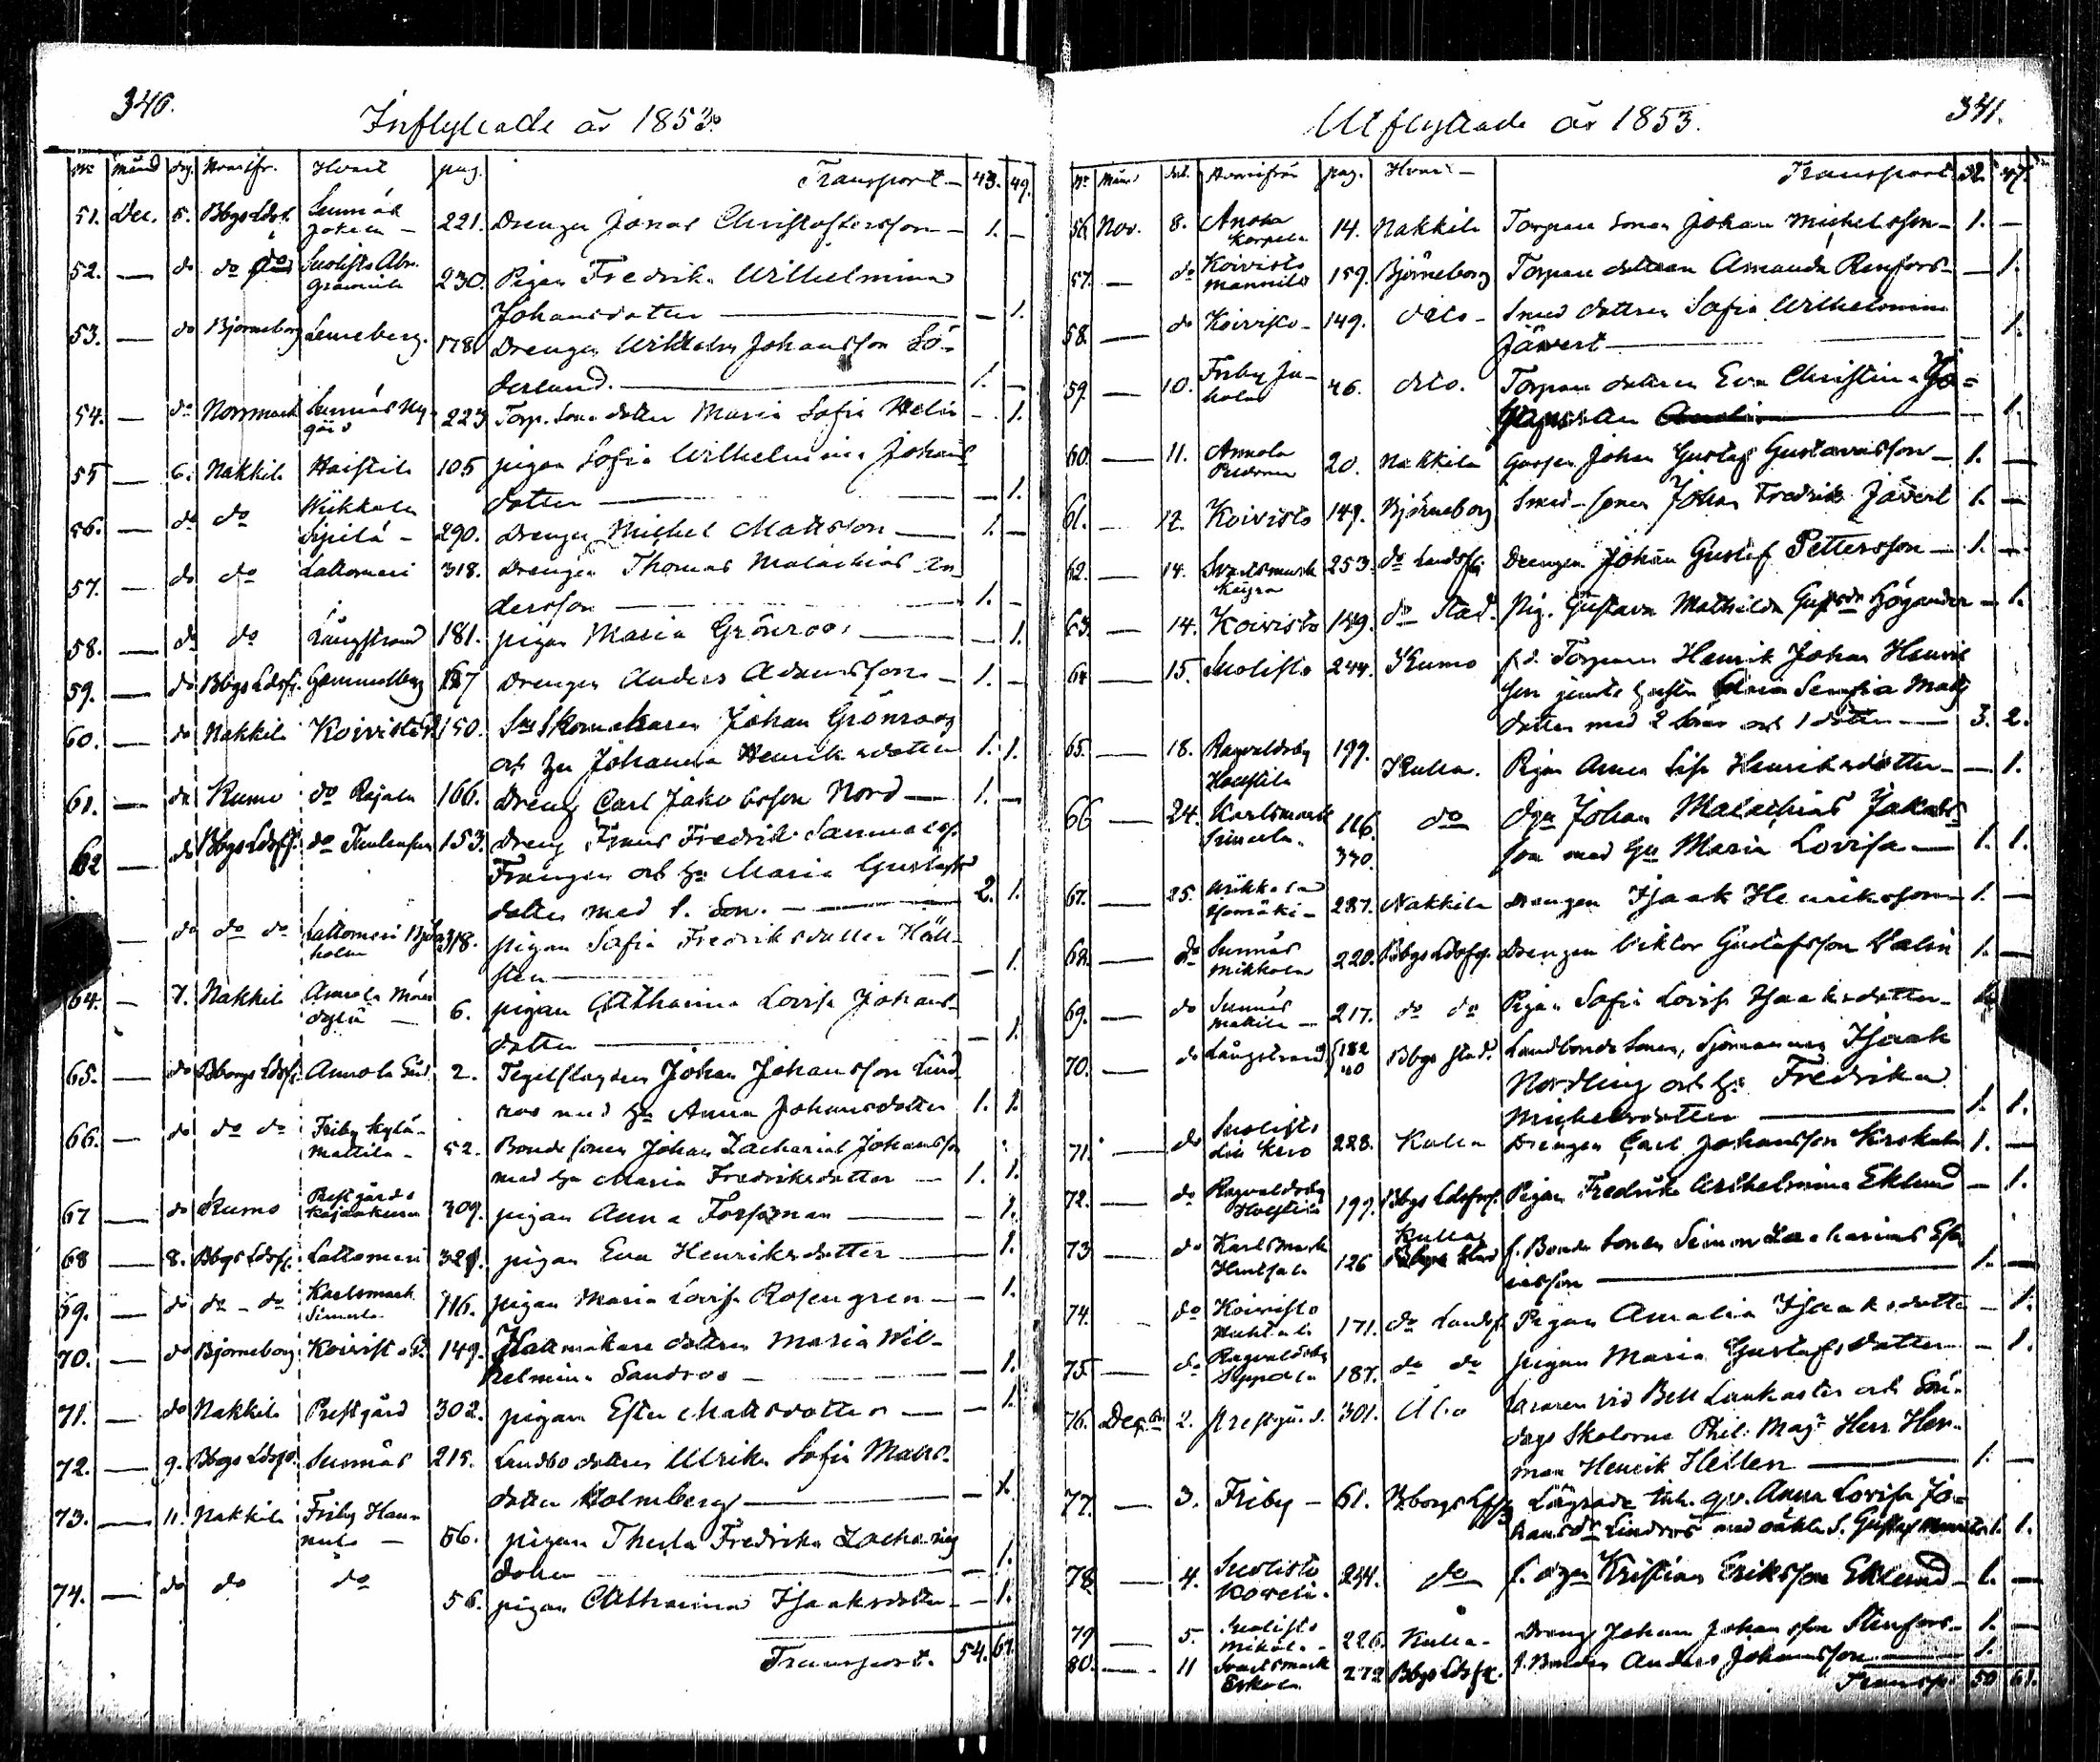 340.
Inflyttade år 1853.
No Månd dag. Hvarifr. Hvart pag. Transport — 43. 49.
51. Dec. 5. Bbgs Ldsf. Sunnäs 221. Drengen Jonas Christoffersson — 1. —
52. — do do Suolisto 230. Pigan Fredrika Wilhelmina
Johansdotter — — 1.
53. — do Björneborg 178. Drengen Wilhelm Johansson Sö-
derlund. — 1. —
54. — do Norrmark Sunnäs 223 Torp. Sone dotter Maria Sofia Helin — 1.
55 — 6. Nakkila Haistila 105 pigan Sofia Wilhelmina Johans
dotter — — 1.
56. — do do Wiikkala
Sipilä — 290. Drengen Michel Mattsson — 1. —
57. — do do Lattomeri 318. Drengen Thomas Malachias An-
dersson — 1. —
58. — do do Långstrand 181. pigan Maria Grönroos — — 1.
59. — do Bbgs Ldsf. Gammelby 167 Drengen Anders Adamsson — 1. —
60. — do Nakkila Koivisto 150. Skomakaren Johan Grönroos
och hu Johanna Henriksdotter 1. 1.
61. — do Kumo do Rajala 166. Dreng Carl Jakobsson Nord — 1. —
62 — do Bbgs Ldsf. do 153. Dreng Frans Fredrik
och hu Maria Gustafs
dotter med 1. Son. — 2. 1.
— do do do Lattomeri
holm 318. pigan Sofia Fredriksdotter Häll-
sten — — 1.
64. — 7. Nakkila Anola 6. pigan Catharina Lovisa Johans-
dotter — — 1.
65. — do Bborgs Ldsf. Anola 2. Tegelslagaren Johan Johansson Lind
roos med hu Anna Johansdotter 1. 1.
66. — do do do Friby Kylä-
Mattila — 52. Bonde sonen Johan Zacharias Johansson
med hu Maria Fredriksdotter — 1. 1.
67 — do Kumo Prestgårds 309. pigan Anna Forssman — — 1.
68 — 8. Bbgs Ldsf. Lattomeri 321. pigan Eva Henriksdotter — — 1.
69. — do do — do Karlsmark
Simula 116. pigan Maria Lovisa Rosengren — — 1.
70. — do Björneborg Koivisto 149. Hattmakare dottren Maria Wil-
helmina Sandroos — — 1.
71. — do Nakkila Prestgård 302. pigan Ester Mattsdotter — — 1.
72. — 9. Bbgs Ldsf. Sunnäs 215. Landbo dottren Ulrika Sofia Matts-
dotter Holmberg — — 1.
73. — 11. Nakkila Friby Han-
nula — 56. pigan Thecla Fredrika Zacharias
dotter — — 1.
74. — do do do 56. pigan Catharina Isaaksdotter — — 1.
Transport. 54. 67.
341.
Utflyttade år 1853.
No Månd dat. Hvarifrån pag. Hvart — Transport 32. 47.
56 Nov. 8. Anola
Karpela 14. Nakkila Torpare sonen Johan Michelsson — 1. —
57. — do Koivisto
Mannila 159. Björneborg Torpare dottren Amanda Renfors — — 1.
58 — do Koivisto — 149. dito — Smed dottren Sofia Wilhelmina
Jäwert — — 1.
59. — 10. Friby Ju-
hola 46. dito. Torpare dottren Eva Christina Jo-
— 1.
60. — 11. Annola 20. Nakkila Gossen Johan Gustaf Gustavusson — 1. —
61. — 12. Koivisto 149. Björneborg Smed-sonen Johan Fredrik Jävert 1. —
62. — 14. Svartsmark 253. do Landsf. Drengen Johan Gustaf Pettersson — 1. —
63. — 14. Koivisto 149. do Stad. Pig. Gustava Mathilda — 1.
64 — 15. Suolisto 244. Kumo f.d. Torparen Henrik Johan Henrik
son jemte hustru Maria Matts
dotter med 2 Söner och 1 dotter — 3. 2.
65. — 18. Ragvaldsby
Haistila 199. Kulla. Pigan Anna Lisa Henriksdotter — — 1.
66 — 24. Karlsmark
Simula. 116.
330. do dgn Johan Malachias Jakobs-
son med hu Maria Lovisa — 1. 1.
67. — 25. Wiikkala 287. Nakkila drengen Isaak Henriksson 1. —
68. — do Sunnäs
Mikkola 220. Bbgs Ldsfg. Drengen Viktor Gustafsson Valin 1. —
69. — do Sunnäs
Mattila — 217. do do Pigan Sofia Lovisa Isaaksdotter —
70. — do Långstrand 182
40 Bbgs stad. Landbonde Sonen, Sjömannen Isaak
Nordling och hu Fredrika
Michelsdotter — 1. 1.
71. — do Suolisto 228. Kulla Drengen Carl Johansson 1. —
72. — do Ragvaldsby
Haistila 199. Bbgs Ldsf. Pigan Fredrika Wilhelmina Eklund — 1.
73 — do Karlsmark 126 Kulla f. Bonde Sonen Simon Zacharias Esa
iasson — 1. —
74. — do Koivisto
Huhtala 171. do Landsf. Pigan Amalia Isaaksdotter — 1.
75 — do Ragvaldsby
Seppälä 187. do do pigan Maria Gustafsdotter — — 1.
76. Dec. 2. Prestgård. 301. Åbo Läraren vid Bell Lankaster och Sön-
dags Skolorna Phil. Magr Herr Her-
man Henrik Hellen — 1. —
77. — 3. Friby — 61. Lägrade qv. Anna Lovisa Jo-
hansdr Lindroos med oäkta S. Gustaf 1. 1.
78. — 4. Suolisto 244. do f. dgn Kristian Eriksson Eklund — 1. —
79 — 5. Suolisto
Mikola — 226. Kulla — Dreng Johan Johansson Stenfors — 1. —
80. — 11 Svartsmark
Eskola 272 Bbgs Ldsf. f. Bonden Anders Johansson — 1.
Transp. 50 61.